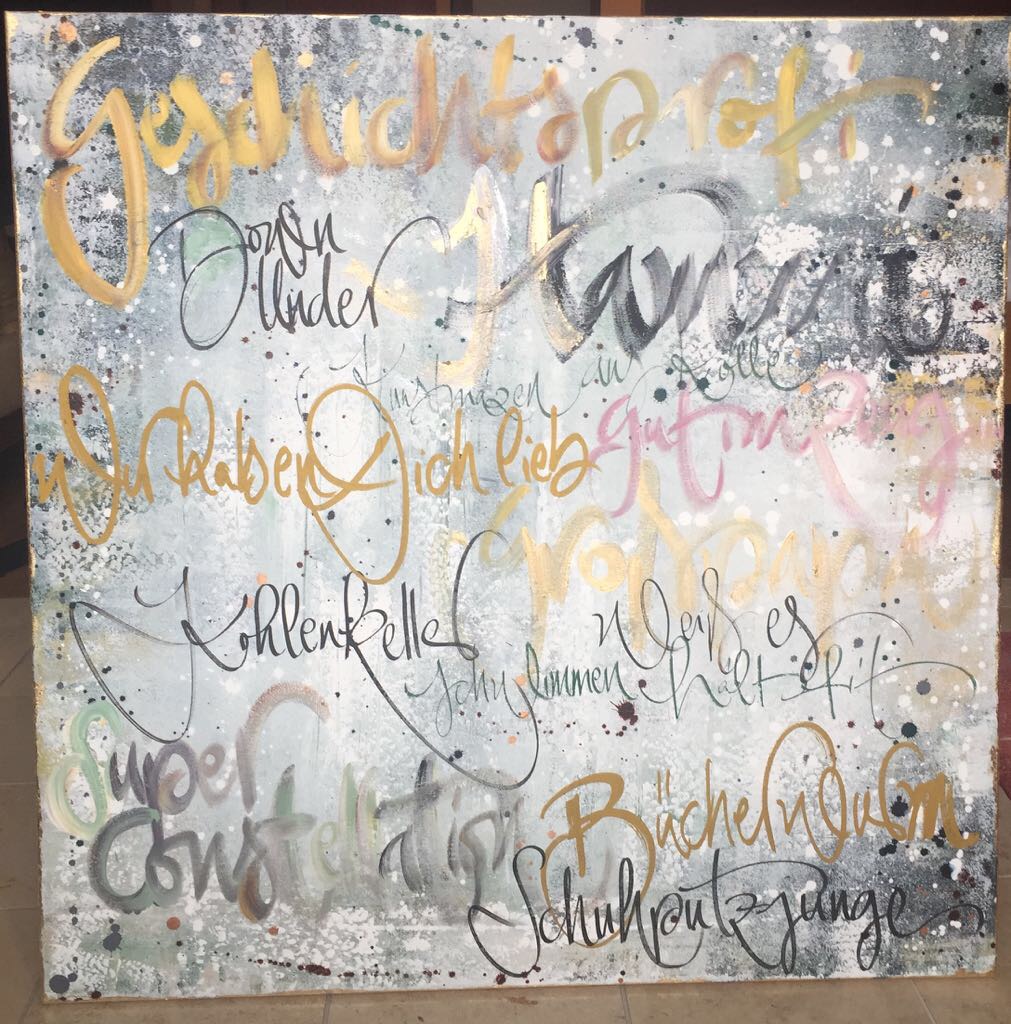 Geschichtsprofi
Down
Under
Hammer
Kunstmagen an Rolle
Wir haben Dich lieb
gut im Zeug
Großpapa
Kohlenkeller
Weiß es
schwimmen hält fit
Super
Constellation
Bücherwurm
Schuhputzjunge